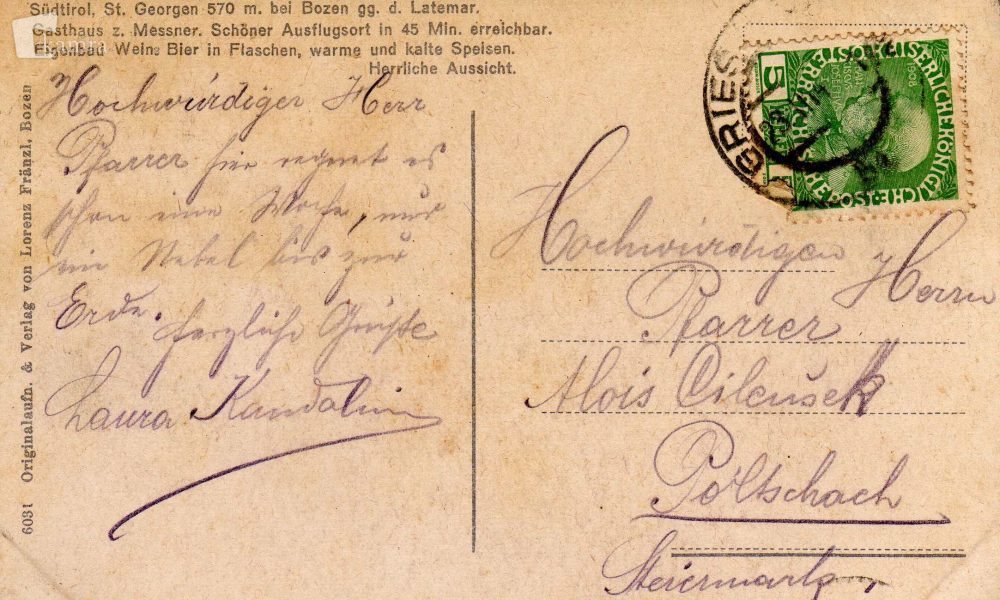 Südtirol, St. Georgen 570 m. bei Bozen gg. d. Latemar.
Gasthaus z. Messner. Schöner Ausflugsort in 45 Min. erreichbar.
Eigenbau Wein, Bier in Flaschen, warme und kalte Speisen.
Herrliche Aussicht.
Hochwürdiger Herr
Pfarrer hier regnet es
schon eine Woche, nur
ein Nebel bis zur
Erde. Herzliche Grüße
Laura
6031 Originalaufn. & Verlag von Lorenz Fränzl, Bozen
GRIES
5
Hochwürdigen Herrn
Pfarrer
Alois Cilenšek
Poltschach
Steiermark